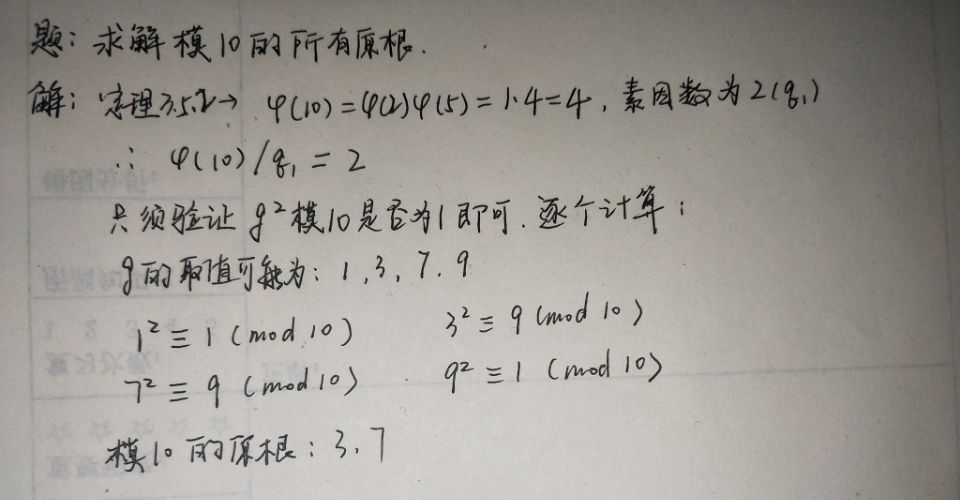 题：求解模10的所有原根.
解：定理3.5.2→ φ(10)=φ(2)φ(5)=1·4=4，素因数为2(q₁)
∴ φ(10)/q₁ = 2
只须验证 g²模10是否为1即可. 逐个计算：
g的取值可能为：1，3，7，9
1² ≡ 1 (mod 10) 3² ≡ 9 (mod 10)
7² ≡ 9 (mod 10) 9² ≡ 1 (mod 10)
模10的原根：3、7